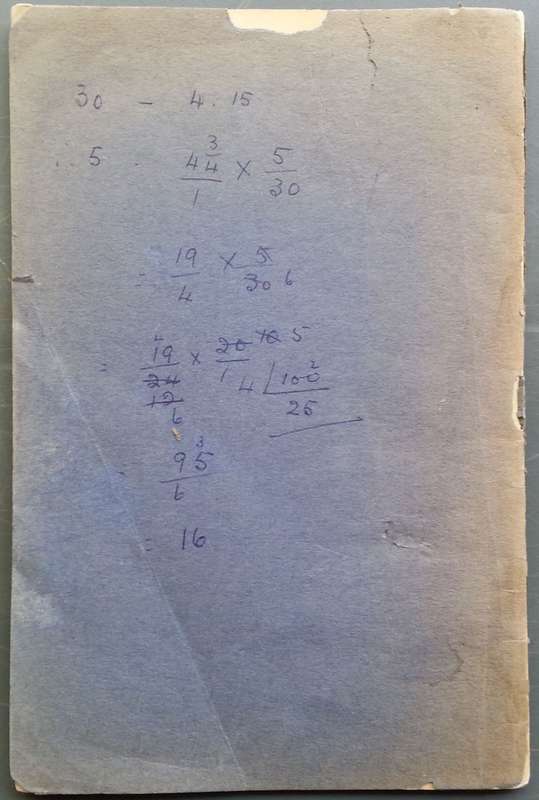 30 - 4.15
∴ 5 . 4 3/4 / 1 × 5/30
= 19/4 × 5/30 6
= 19/24 12 6 × 20/1 10 5
4 | 100
25
95/6
= 16